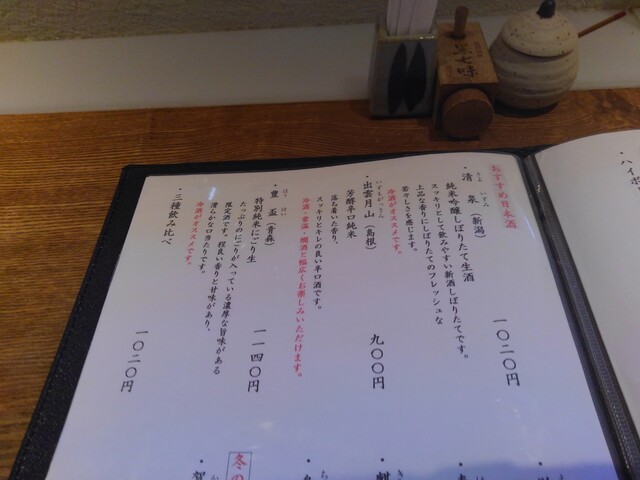 おすすめ日本酒
・清泉（新潟）
きよ いずみ
一〇二〇円
純米吟醸しぼりたて生酒
スッキリとして飲みやすい新酒しぼりたてです。
上品な香りにしぼりたてのフレッシュな
若々しさを感じます。
冷酒がオススメです。
・出雲月山（島根）
いずもがっさん
九〇〇円
芳醇辛口純米
落ち着いた香り、
スッキリとキレの良い辛口酒です。
冷酒・常温・燗酒と幅広くお楽しみいただけます。
・豊盃（青森）
ほう はい
一一四〇円
特別純米にごり生
たっぷりのにごりが入っている濃厚な旨味がある
限定酒です。程良い香りと甘味があり、
滑らかな口当たりです。
冷酒がオススメです。
・三種飲み比べ
一〇二〇円
冬の
黒七味
ハイボ